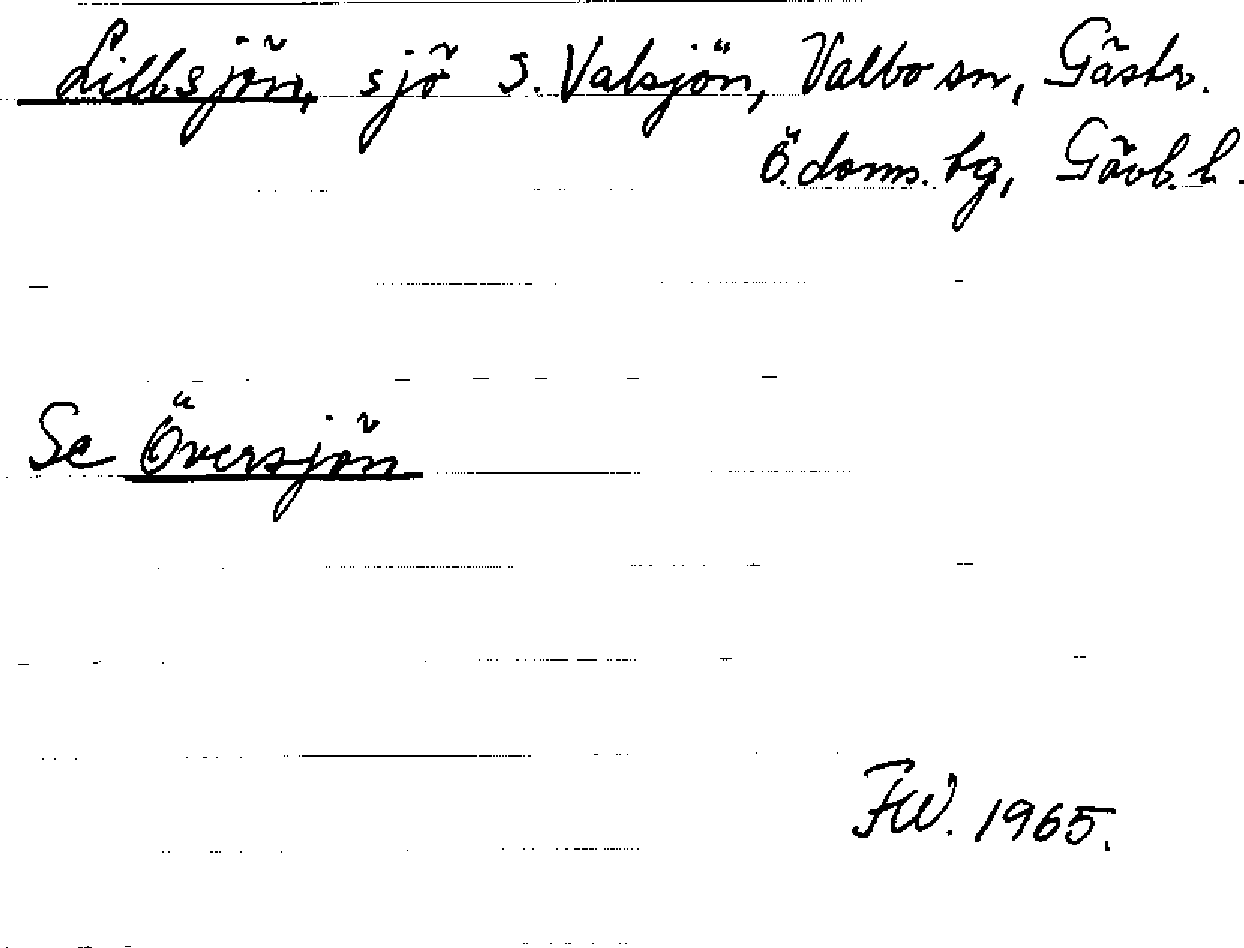 Lillsjön, sjö S. Valsjön, Valbo sn, Gästr.
Ö. doms. tg, Gävl. l.
Se Översjön
FW. 1965.